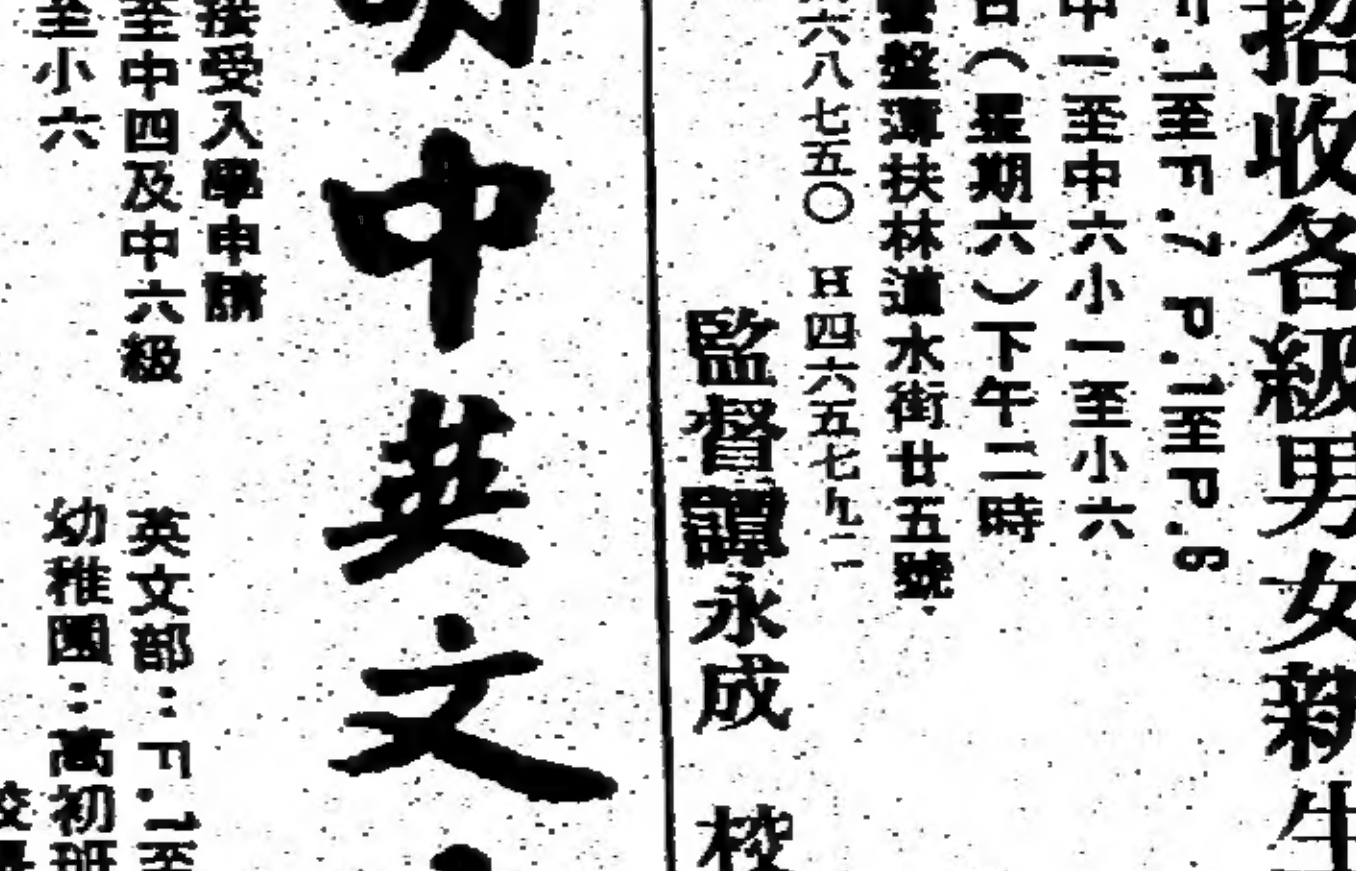 招收各級男女新生
F.1至F.7 P.1至P.6
中一至中六小一至小六
日（星期六）下午二時
營盤薄扶林道水街廿五號
六八七五〇 H四六五七九二
監督譚永成 校
明中英文
接受入學申請
至中四及中六級 英文部：F.1至
至小六 幼稚園：高初班
校長